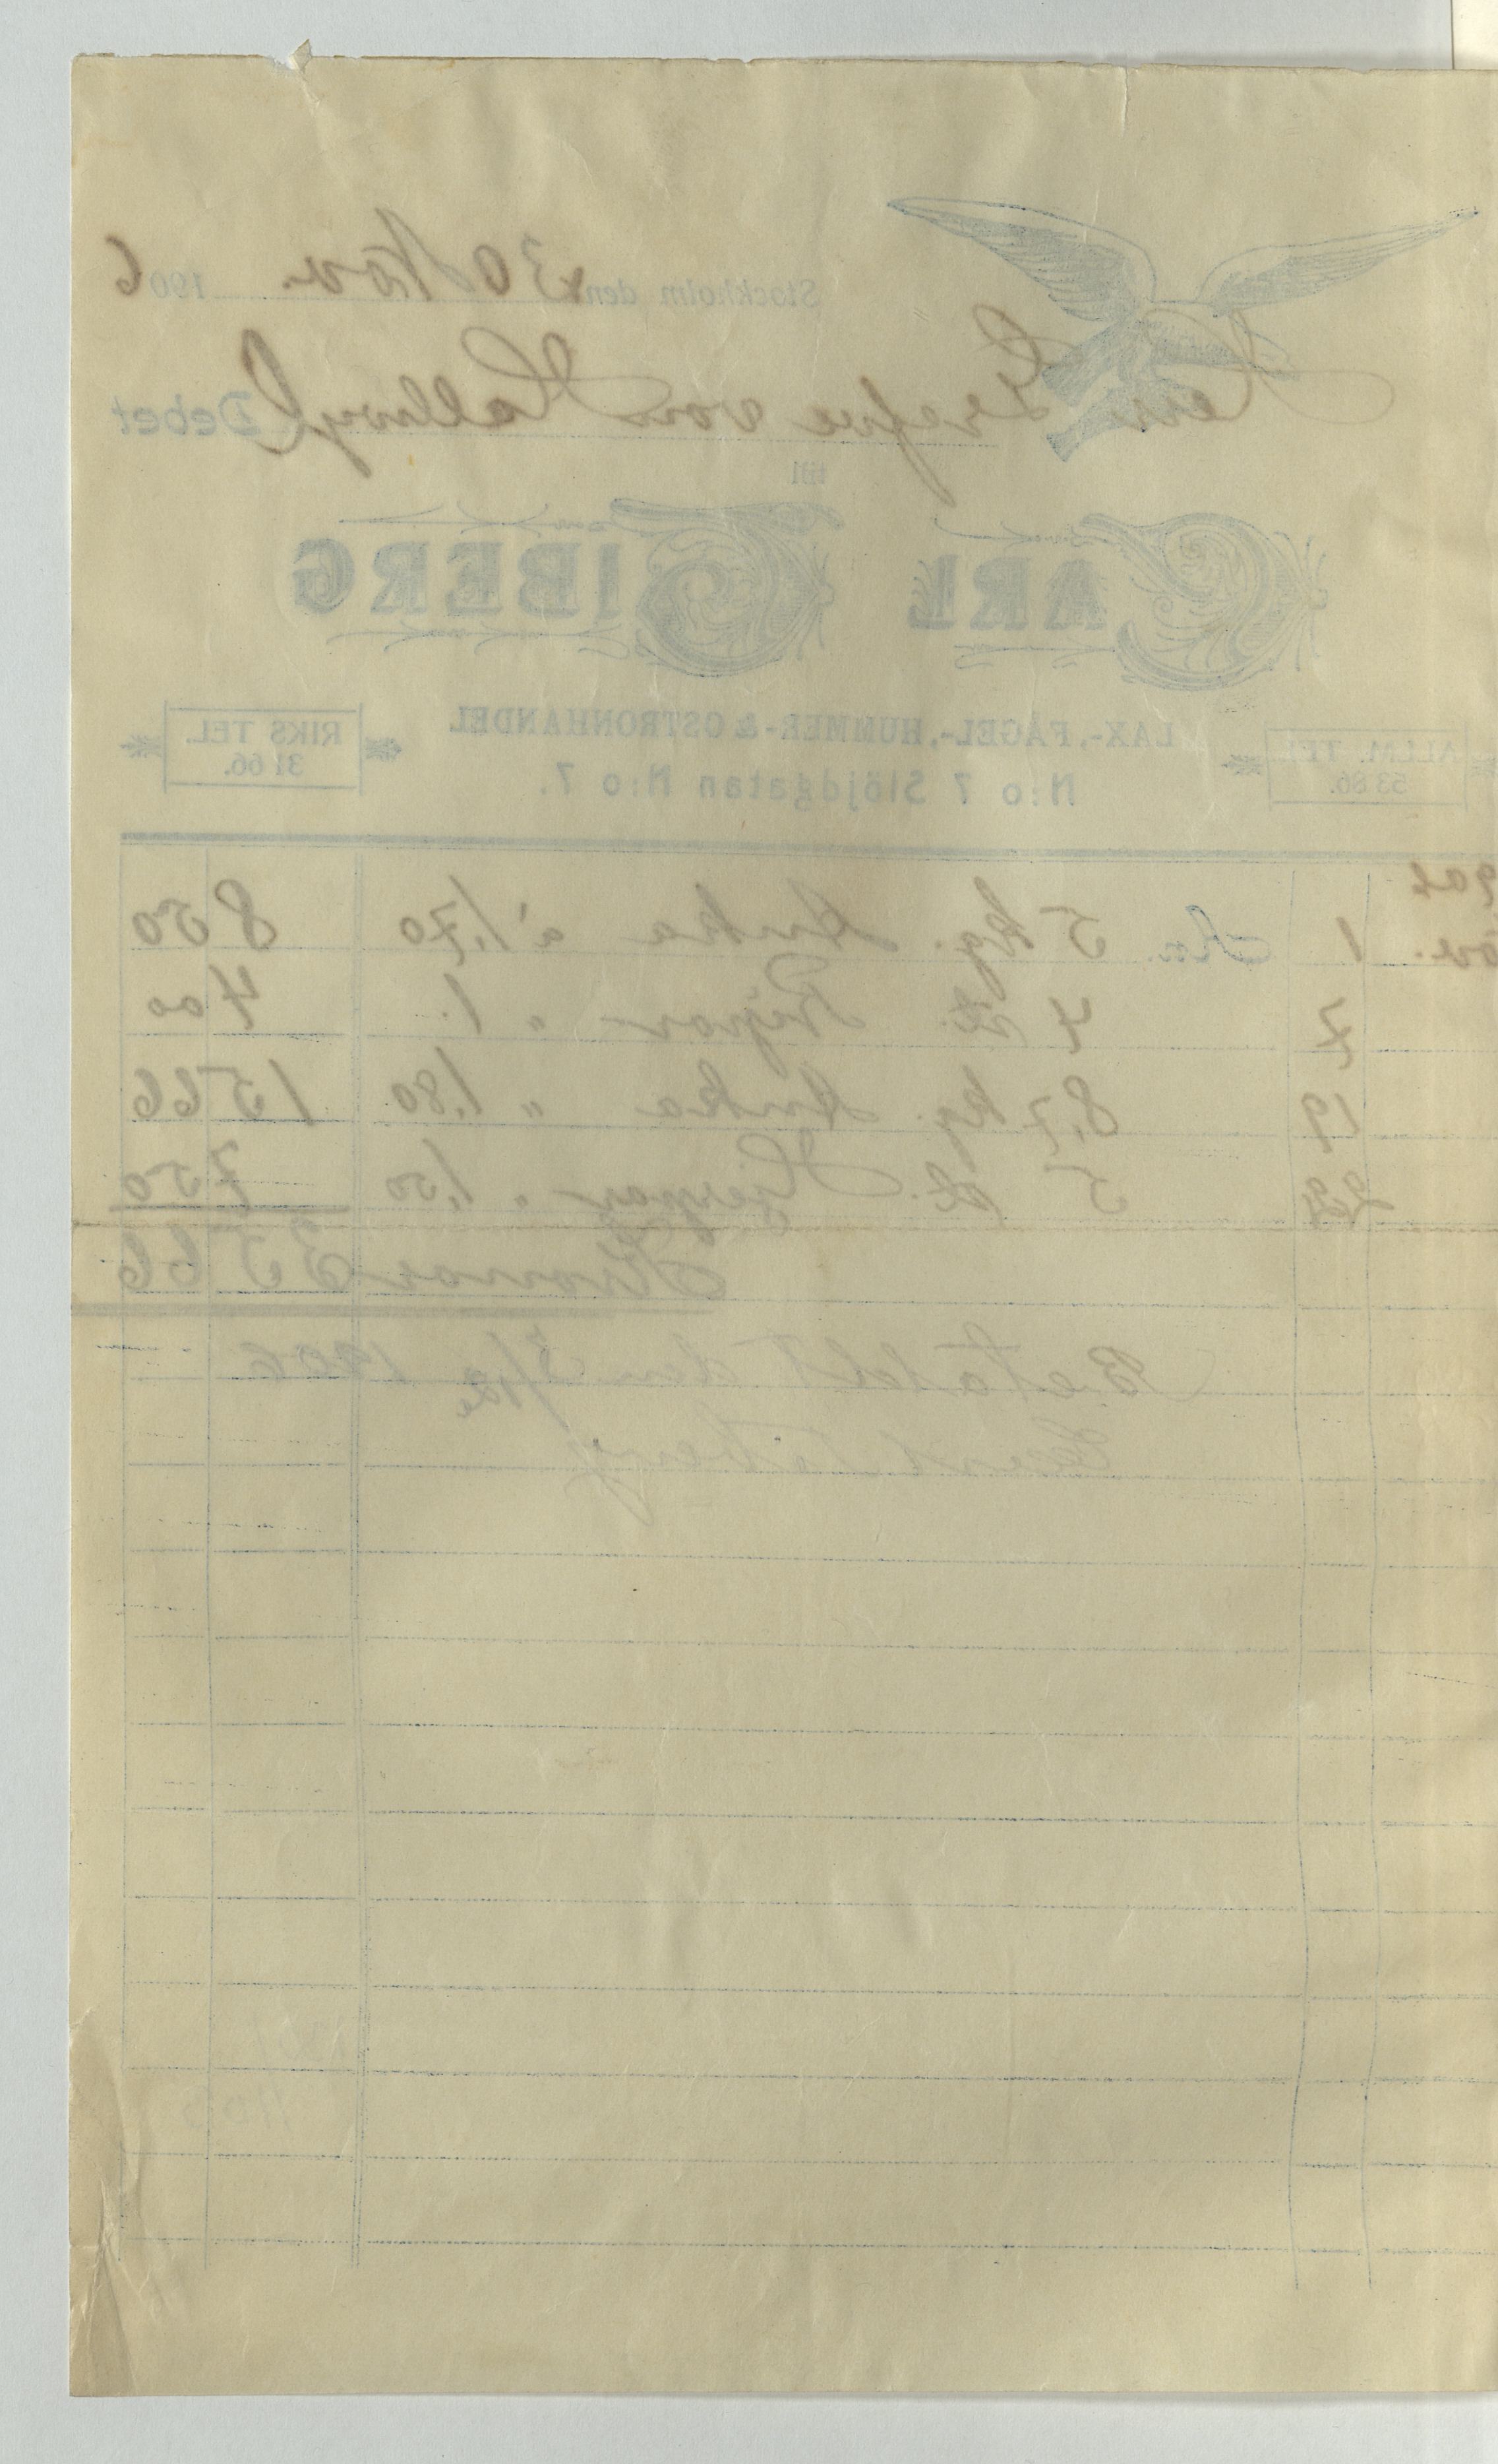 Stockholm den 30 Nov. 1906
Herr Grefve von Hallwyl Debet
till
CARL SIBERG
ALLM. TEL. 53 86.
LAX-, FÅGEL-, HUMMER- & OSTRONHANDEL
RIKS TEL. 31 66.
N:o 7 Slöjdgatan N:o 7.
Nov. 1 5 kg. Anka à 1,70 8 50
7 4 st. Ripor " 1. 4 00
19 8,7 kg. Anka " 1,80 15 66
24 5 st. Hjerpar " 1,50 7 50
Kronor 35 66
Betaldt den 5/12 1906
Carl Siberg